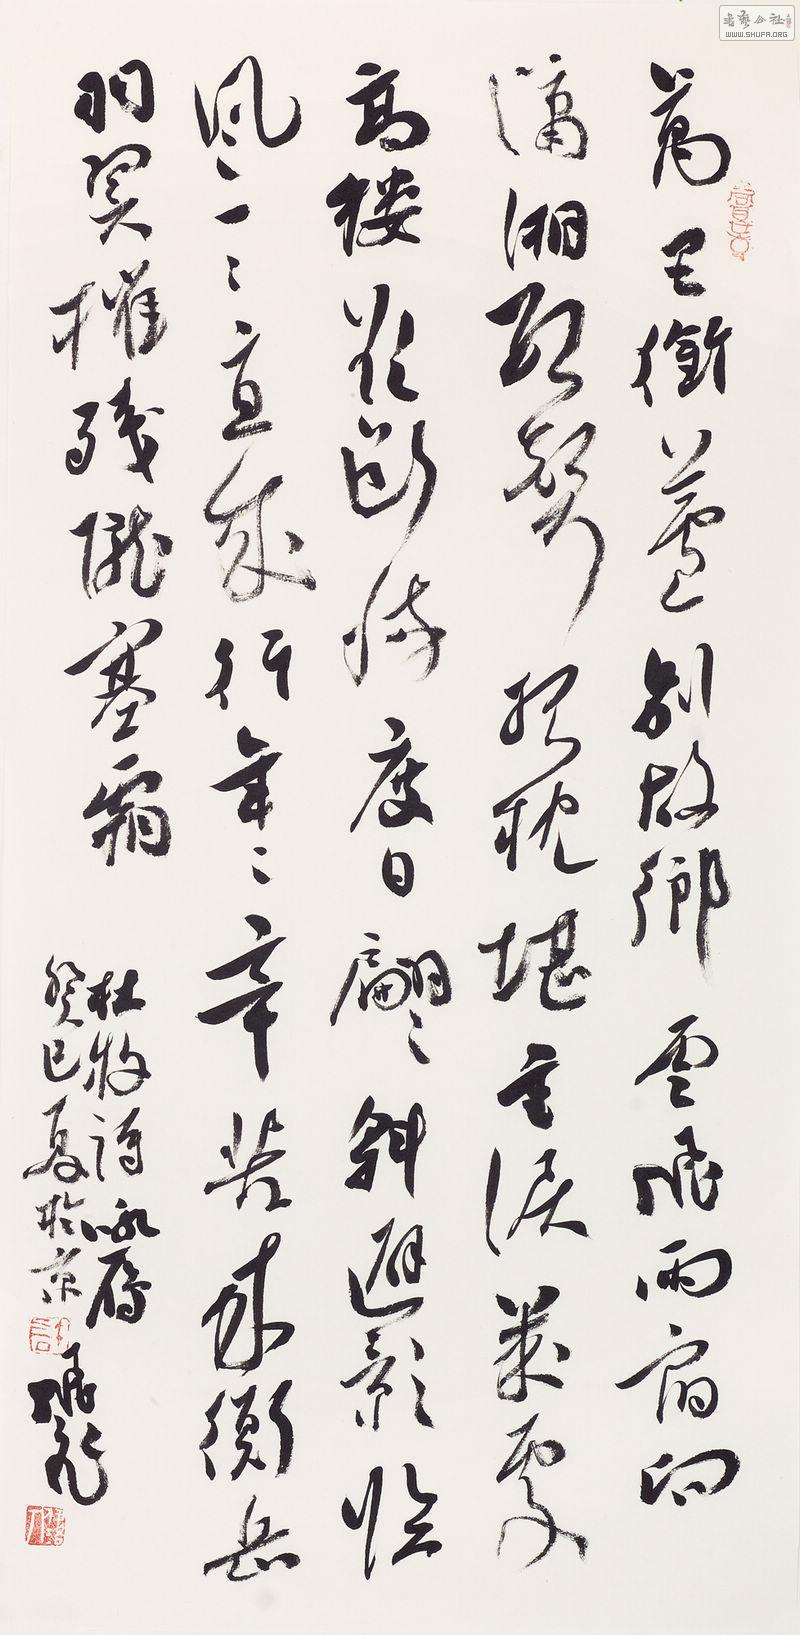 書藝公社
WWW.SHUFA.ORG
萬里銜蘆別故鄉雲飛雨宿向
瀟湘數聲孤枕堪垂淚幾處
高楼欲斷腸度日翩〻斜避影臨
風一〻直成行年〻辛苦來衡岳
羽翼摧残隴塞霜
杜牧詩詠雁
癸巳夏於京